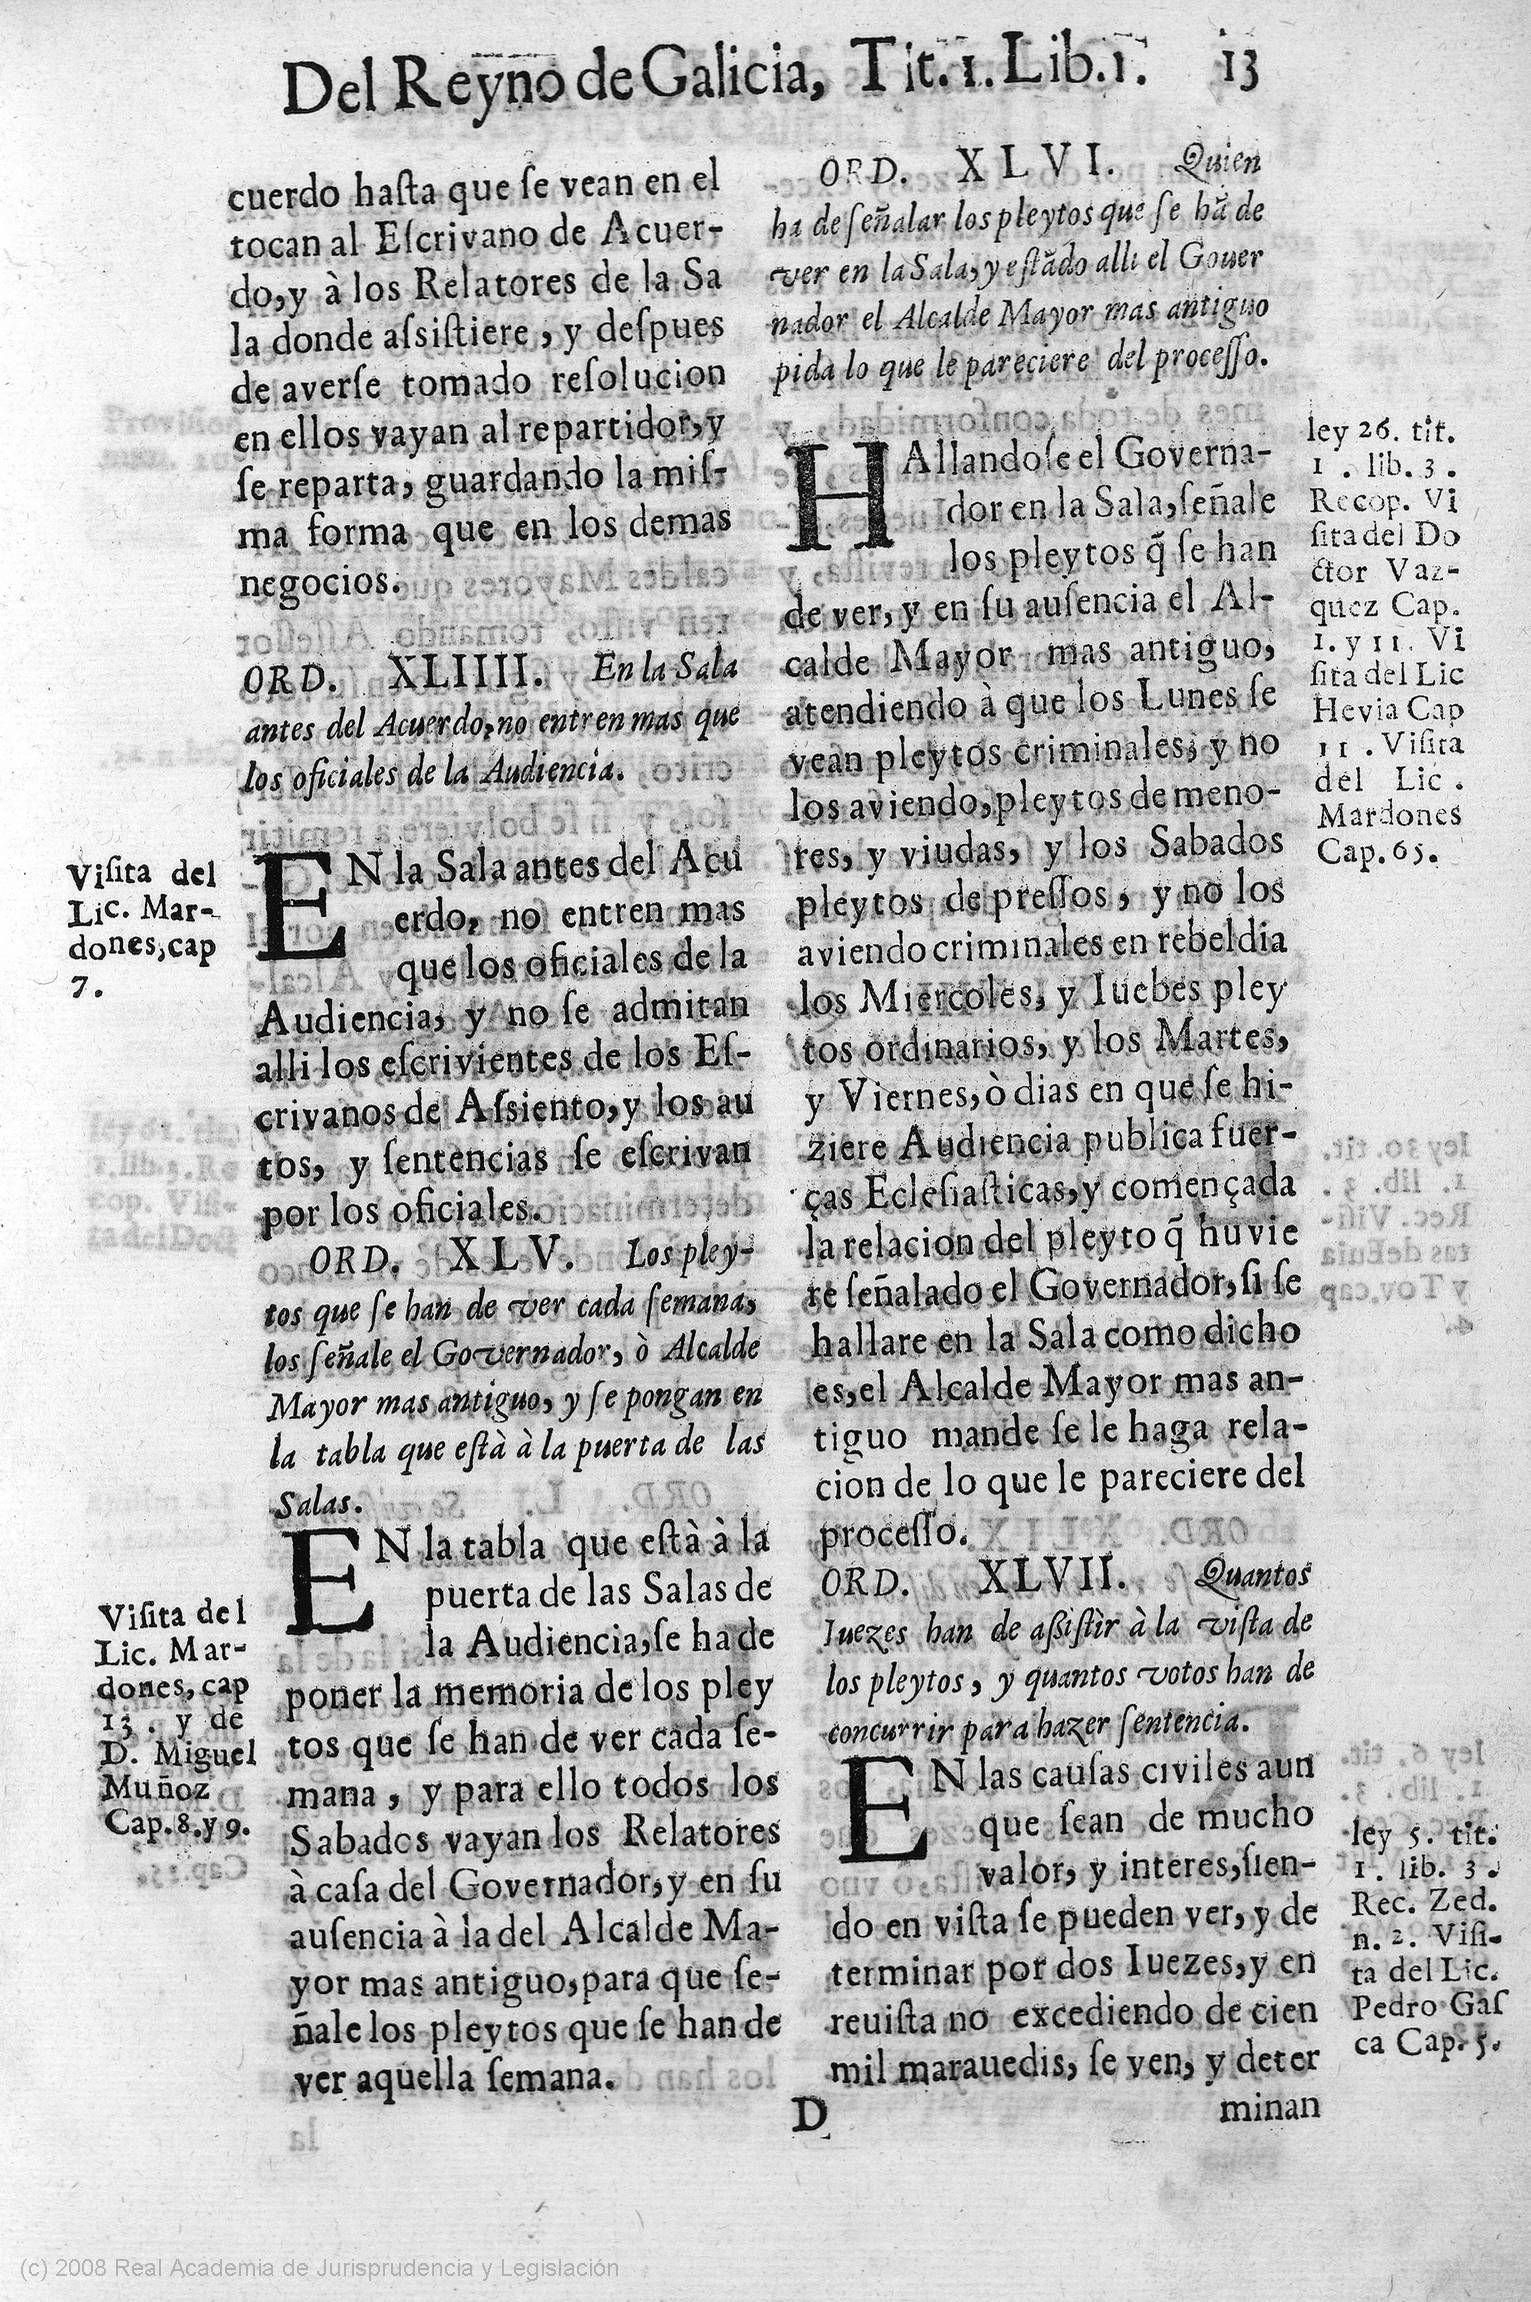 Del Reyno de Galicia, Tit. 1. Lib. 1. 13
cuerdo haſta que ſe vean en el
tocan al Eſcrivano de Acuer-
do, y à los Relatores de la Sa
la donde aſsiſtiere, y deſpues
de averſe tomado reſolucion
en ellos vayan al repartidor, y
ſe reparta, guardando la miſ-
ma forma que en los demas
negocios.
ORD. XLIIII. En la Sala
antes del Acuerdo, no entren mas que
los oficiales de la Audiencia.
Viſita del
Lic. Mar-
dones, cap
7.
EN la Sala antes del Acu
erdo, no entren mas
que los oficiales de la
Audiencia, y no ſe admitan
alli los eſcrivientes de los Eſ-
crivanos de Aſsiento, y los au
tos, y ſentencias ſe eſcrivan
por los oficiales.
ORD. XLV. Los pley-
tos que ſe han de ver cada ſemana,
los ſeñale el Governador, ò Alcalde
Mayor mas antiguo, y ſe pongan en
la tabla que eſtà à la puerta de las
Salas.
Viſita del
Lic. Mar-
dones, cap
13. y de
D. Miguel
Muñoz
Cap. 8. y 9.
EN la tabla que eſtà à la
puerta de las Salas de
la Audiencia, ſe ha de
poner la memoria de los pley
tos que ſe han de ver cada ſe-
mana, y para ello todos los
Sabados vayan los Relatores
à caſa del Governador, y en ſu
auſencia à la del Alcalde Ma-
yor mas antiguo, para que ſe-
ñale los pleytos que ſe han de
ver aquella ſemana.
ORD. XLVI. Quien
ha de ſeñalar los pleytos que ſe hã de
ver en la Sala, y eſtãdo alli el Gouer
nador el Alcalde Mayor mas antiguo
pida lo que le pareciere del proceſſo.
HAllandoſe el Governa-
dor en la Sala, ſeñale
los pleytos q̃ ſe han
de ver, y en ſu auſencia el Al-
calde Mayor mas antiguo,
atendiendo à que los Lunes ſe
vean pleytos criminales, y no
los aviendo, pleytos de meno-
res, y viudas, y los Sabados
pleytos de preſſos, y no los
aviendo criminales en rebeldia
los Miercoles, y Iuebes pley
tos ordinarios, y los Martes,
y Viernes, ò dias en que ſe hi-
ziere Audiencia publica fuer-
ças Ecleſiaſticas, y començada
la relacion del pleyto q̃ huvie
re ſeñalado el Governador, ſi ſe
hallare en la Sala como dicho
es, el Alcalde Mayor mas an-
tiguo mande ſe le haga rela-
cion de lo que le pareciere del
proceſſo.
ley 26. tit.
1. lib. 3.
Recop. Vi
ſita del Do
ctor Vaz-
quez Cap.
1. y 11. Vi
ſita del Lic
Hevia Cap
11. Viſita
del Lic.
Mardones
Cap. 65.
ORD. XLVII. Quantos
Iuezes han de aſsiſtir à la viſta de
los pleytos, y quantos votos han de
concurrir para hazer ſentencia.
EN las cauſas civiles aun
que ſean de mucho
valor, y interes, ſien-
do en viſta ſe pueden ver, y de
terminar por dos Iuezes, y en
reuiſta no excediendo de cien
mil marauedis, ſe ven, y deter
ley 5. tit.
1. lib. 3.
Rec. Zed.
n. 2. Viſi-
ta del Lic.
Pedro Gaſ
ca Cap. 5.
D minan
(c) 2008 Real Academia de Jurisprudencia y Legislación